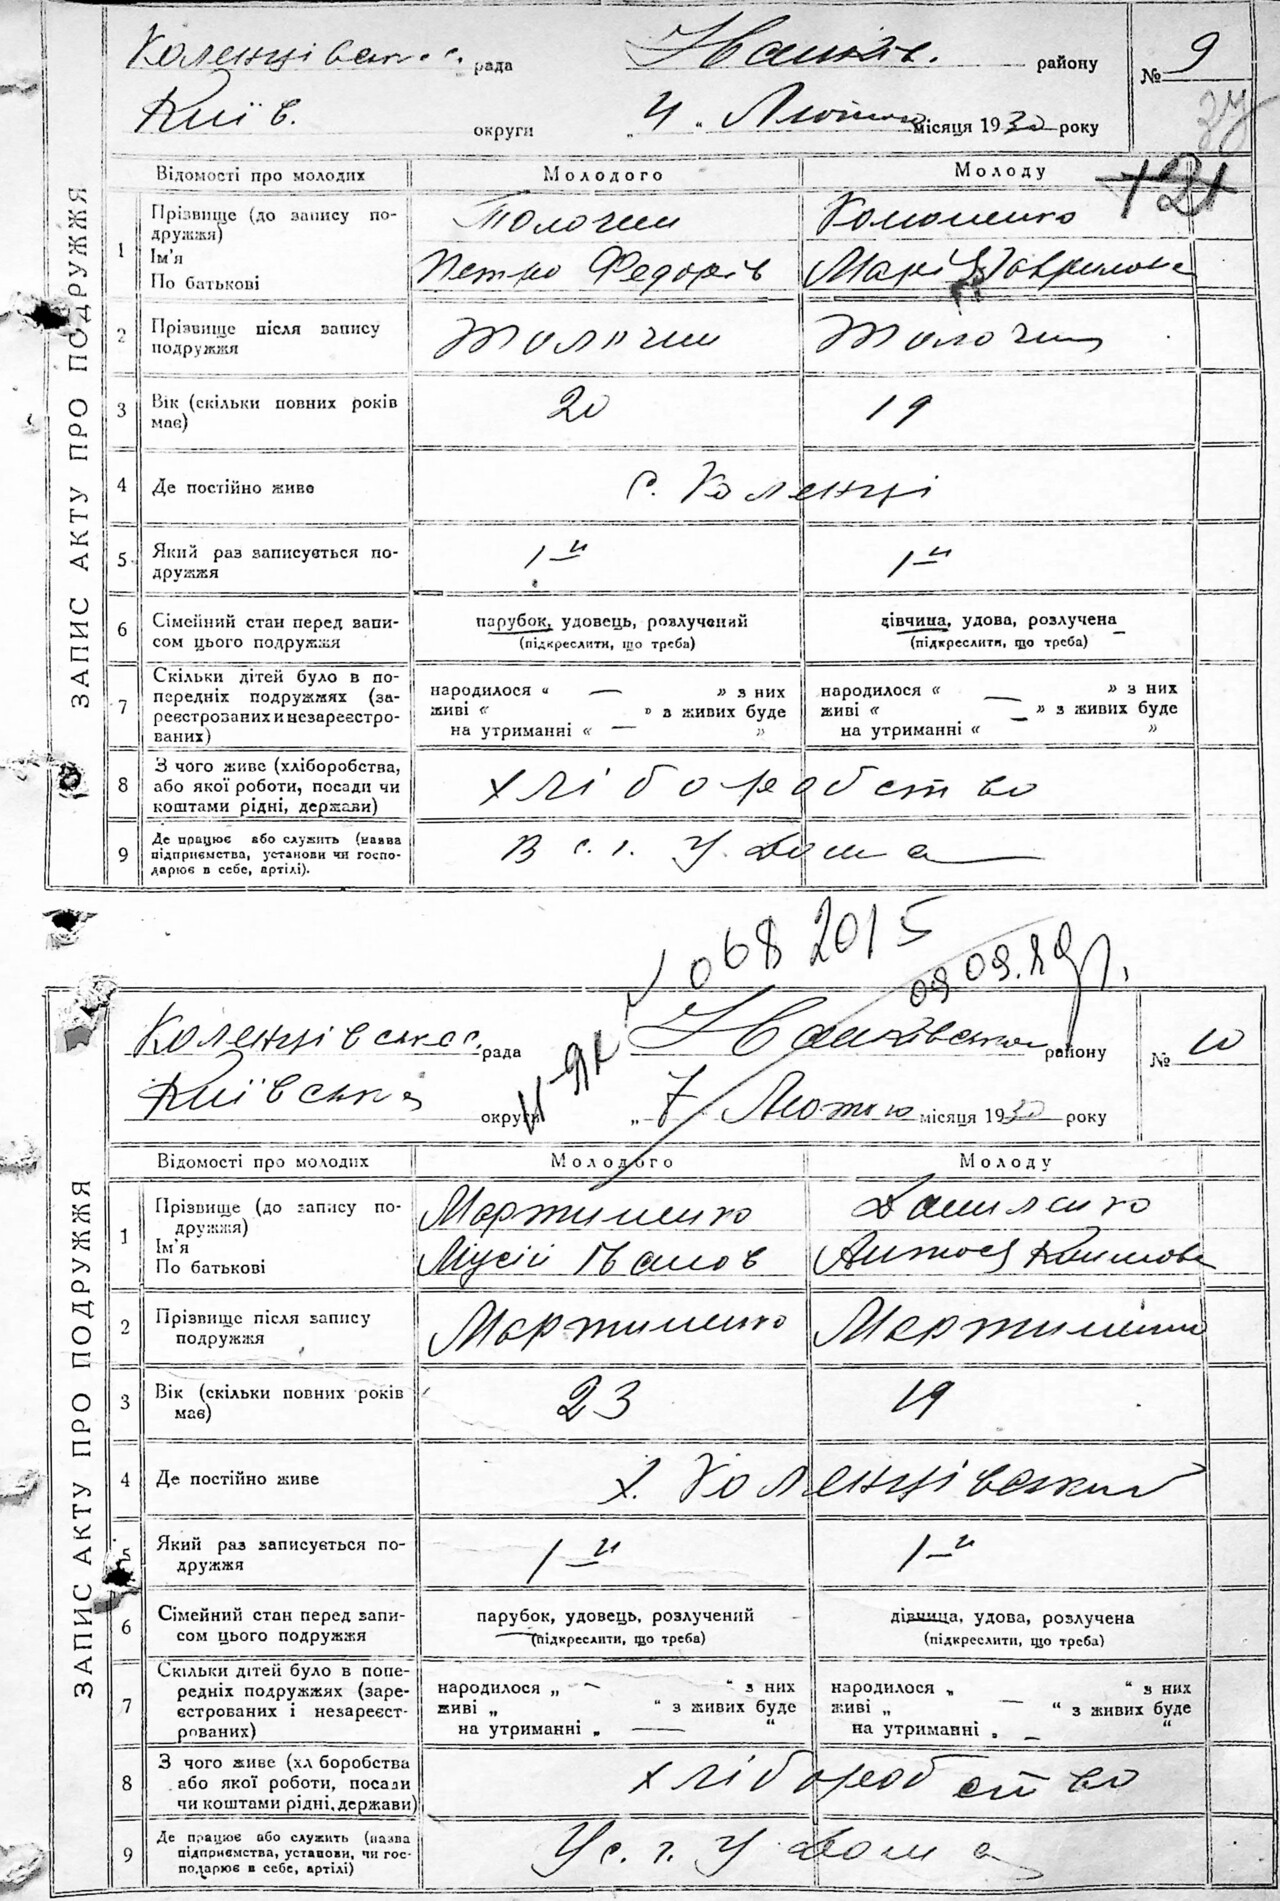 Коленцівськ. с. рада Іванків. району № 9
Київ. округи „4" Лютого місяця 1930 року
ЗАПИС АКТУ ПРО ПОДРУЖЖЯ
Відомості про молодих Молодого Молоду
1 Прізвище (до запису подружжя) Толочин
Ім'я Петро Федорів
По батькові
2 Прізвище після запису подружжя Толочин Толочин
3 Вік (скільки повних років має) 20 19
4 Де постійно живе с. Коленці
5 Який раз записується подружжя 1-й 1-й
6 Сімейний стан перед записом цього подружжя парубок, удовець, розлучений дівчина, удова, розлучена
(підкреслити, що треба) (підкреслити, що треба)
7 Скільки дітей було в попередніх подружжях (зареєстрованих и незареєстрованих) народилося « — » з них народилося « — » з них
живі « » з живих буде живі « » з живих буде
на утриманні « — » на утриманні « — »
8 З чого живе (хліборобства, або якої роботи, посади чи коштами рідні, держави) хліборобство
9 Де працює або служить (назва підприємства, установи чи господарює в себе, артілі). В с. г. У дома
№ 068 2015
09.09.89р.
Коленцівськ с. рада Іванківського району № 10
Київська округи „7 Лютого місяця 1930 року
ЗАПИС АКТУ ПРО ПОДРУЖЖЯ
Відомості про молодих Молодого Молоду
1 Прізвище (до запису подружжя) Мартиненко Даниленко
Ім'я Мусій Іванов
По батькові
2 Прізвище після запису подружжя Мартиненко Мартиненко
3 Вік (скільки повних років має) 23 19
4 Де постійно живе х. Коленцівський
5 Який раз записується подружжя 1-й 1-й
6 Сімейний стан перед записом цього подружжя парубок, удовець, розлучений дівчица, удова, розлучена
(підкреслити, що треба) (підкреслити, що треба)
7 Скільки дітей було в попередніх подружжях (зареєстрованих і незареєстрованих) народилося „ — " з них народилося „ " з них
живі „ " з живих буде живі „ — " з живих буде
на утриманні „ — " на утриманні „ — "
8 З чого живе (хл боробства або якої роботи, посади чи коштами рідні, держави) хліборобство
9 Де працює або служить (назва підприємства, установи, чи господарює в себе, артілі) У с. г. У дома